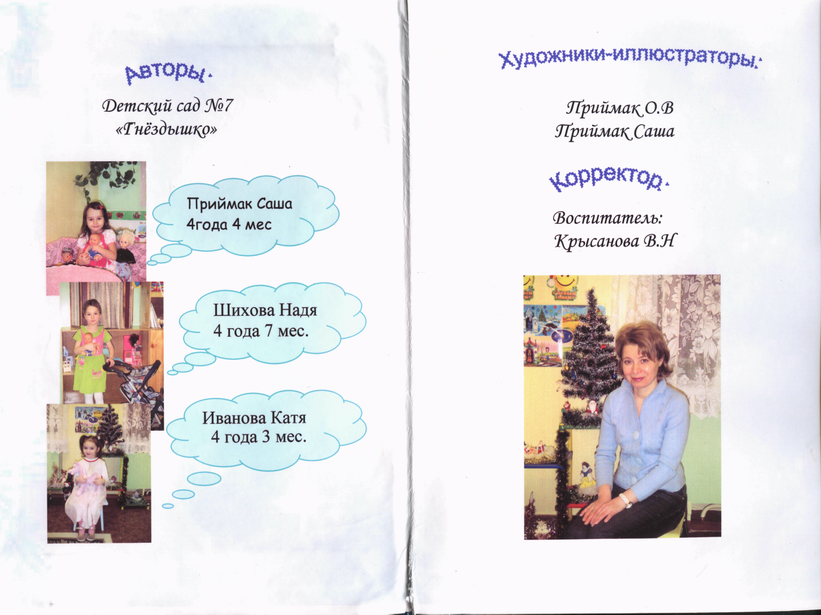 Авторы:
Детский сад №7
«Гнёздышко»
Приймак Саша
4года 4 мес
Шихова Надя
4 года 7 мес.
Иванова Катя
4 года 3 мес.
Художники-иллюстраторы:
Приймак О.В
Приймак Саша
Корректор:
Воспитатель:
Крысанова В.Н